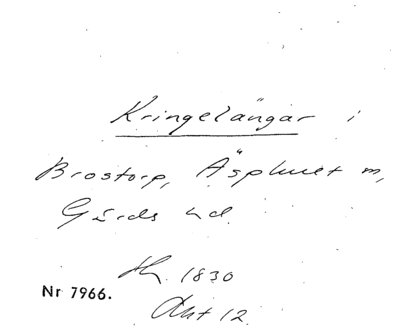 Kringelängar i
Brostorp, Äsphult m,
Gärds hd.
1830
Nr 7966.
Akt 12.